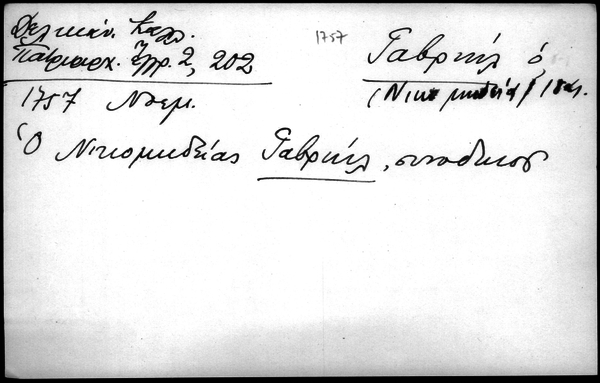 Δελικάν. Καλλ.
Πατριαρχ. Έγγρ. 2, 202
1757
Γαβριήλ ὁ
(Νικομηδείας)
1757 Νοεμ.
Ὁ Νικομηδείας Γαβριήλ, συνοδικός